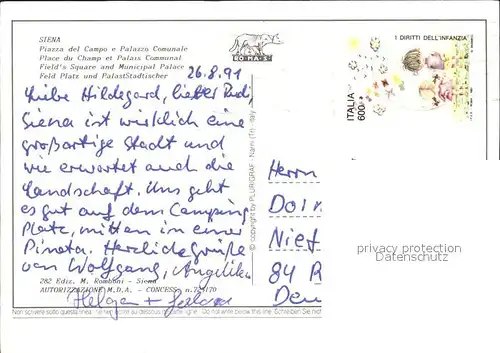 SIENA
Piazza del Campo e Palazzo Comunale
Place du Champ et Palais Communal
Field's Square and Municipal Palace
Feld Platz und PalastStadtischer
26.8.91
Liebe Hildegard, lieber Rudi,
Siena ist wirklich eine
großartige Stadt und
wie erwartet auch die
Landschaft. Uns geht
es gut auf dem Camping
Platz, mitten in einer
Pineta. Herzliche Grüße
von Wolfgang, Angelika
Helga +
282 Ediz. M. Romboni - Siena
AUTORIZZAZIONE M.D.A. - CONCESS.
© copyright by PLURIGRAF - Narni (TR) - Italy
RO MA S
I DIRITTI DELL'INFANZIA
ITALIA
600
Herrn
Nief
84 R
privacy protection
AnsichtskartenCenter
Non scrivere sotto questa linea
Do not write below this line